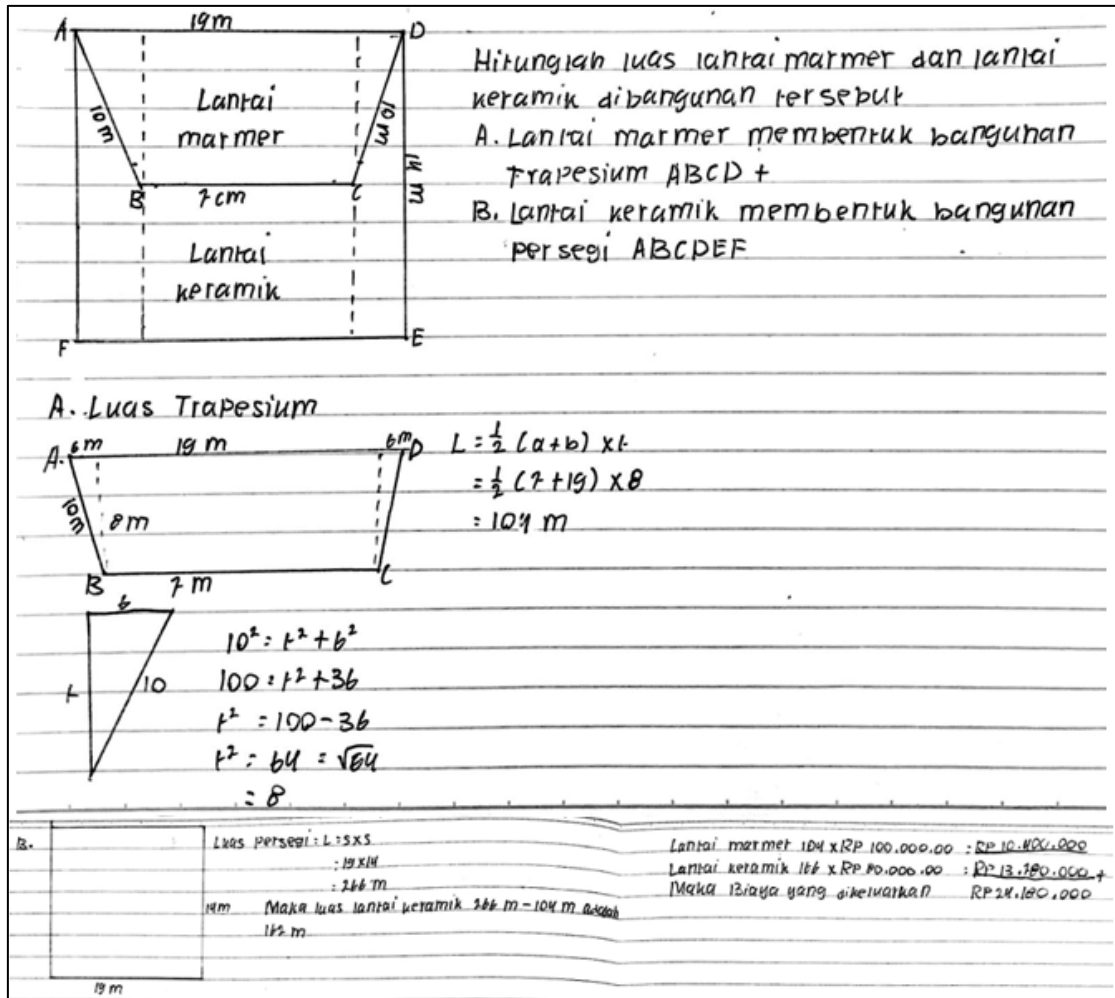 19m
A
D
Lantai
marmer
10m
10m
14 m
B
7cm
C
Lantai
keramik
F
E
Hitunglah luas lantai marmer dan lantai
keramik dibangunan tersebut
A. Lantai marmer membentuk bangunan
Trapesium ABCD +
B. Lantai keramik membentuk bangunan
persegi ABCDEF
A. Luas Trapesium
6m
19 m
6m
A.
D
10m
8m
B
7 m
C
L = 1/2 (a+b) x t
= 1/2 (7+19) x 8
= 104 m
6
t
10
10² = t² + 6²
100 = t² + 36
t² = 100 - 36
t² = 64 = √64
= 8
B.
14m
19 m
Luas persegi : L = S x S
: 19 x 14
: 266 m
Maka luas lantai keramik 266 m - 104 m adalah
162 m
Lantai marmer 104 x RP 100.000.00 : RP 10.400.000
Lantai keramik 166 x RP 80.000.00 : RP 13.780.000 +
Maka Biaya yang dikeluarkan RP 24.180.000